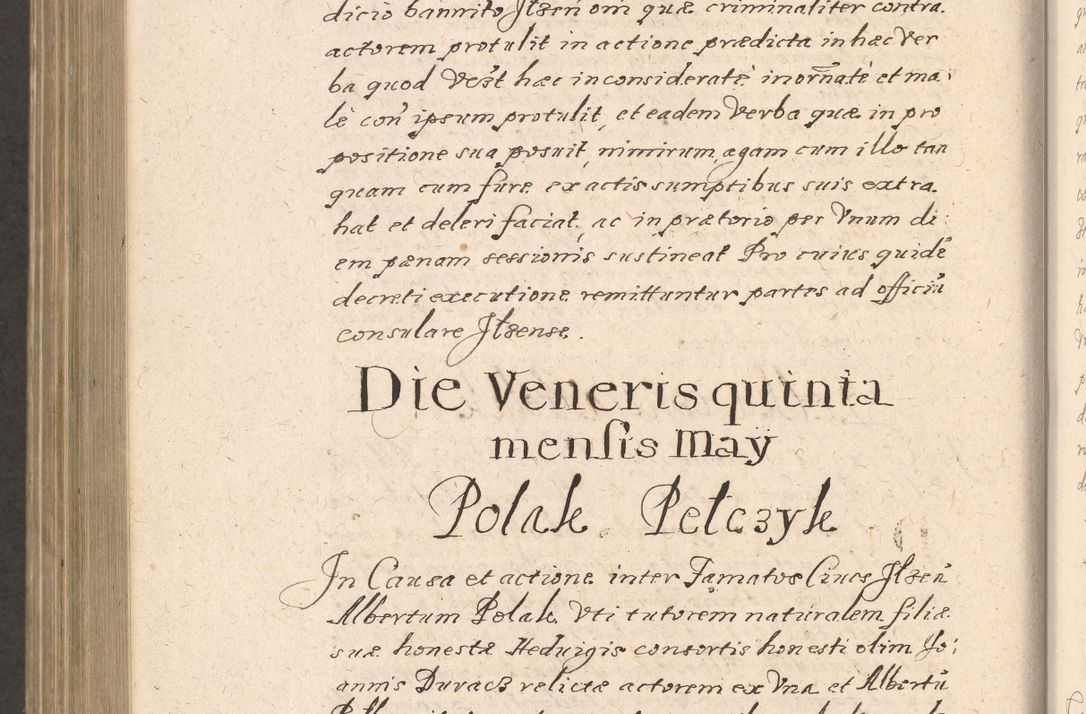 dicio bannito Ilzeń om̄ quæ criminaliter contra
actorem protulit in actione prædicta in hæc Ver
ba quod Vest hæc inconsideratè inornatè et ma:
lè coñ ipsum protulit, et eadem Verba quæ in pro
positione sua posuit, nimirum, agam cum illo tan
quam cum fure, ex actis sumptibus suis extra
hat et deleri faciat, ac in prætorio per Vnum di
em pænam sessionis sustineat Pro cuius quidē
decreti executione remittuntur partes ad officiū
consulare Ilzense.
Die Veneris quinta
mensis May
Polak Pelczyk
In Causa et actione inter Famatos Cives Ilzeń
Albertum Polak Vti tutorem naturalem filiæ
suæ honestæ Hedvigis consortis honesti olim Jo:
annis Duracz relictæ actorem ex Vna et Albertū